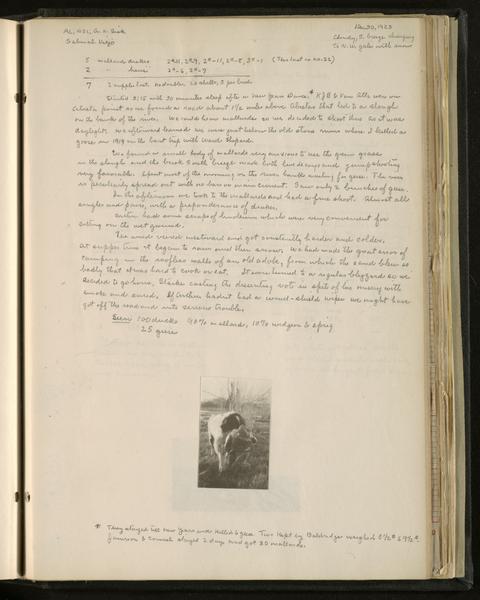 AL, CSL, G. M. Bush
Sabinal
Dec. 30, 1923
Cloudy, S. breeze changing
to N.W. gale with snow
5 mallard drakes (This last is no. 32)
2 " hens
7 2 cripples lost. No doubles. 2.5 shells, 5 per bird
Started 3:15 with 30 minutes sleep after a New Years Dance.* were on
point so we found a road about 1½ miles above Abeytas that led to a slough
on the bank of the river. We could hear mallards so we decided to shoot this as it was
daylight. We afterward learned we were just below the old store ruins where I killed a
goose in 1919 on the boat trip with Ward Shepard.
We found a small body of mallards very anxious to use the green grass
in the slough and the brisk south breeze made both live decoys and jumpshooting
very favorable. Spent most of the morning on the river bank waiting for geese. The river
is peculiarly spread out with no bars or main current. Saw only 2 bunches of geese.
In the afternoon we took to the mallards and had a fine shoot. Almost all
singles and pairs, with a preponderance of drakes.
had some scraps of linoleum which were very convenient for
sitting on the wet ground.
The wind veered westward and got constantly harder and colder.
At supper time it began to rain and then snow. We had made the great error of
camping in the roofless walls of an old adobe, from which the sand blew so
badly that it was hard to cook or eat. It soon turned to a regular blizzard so we
decided to go home, casting the dissenting vote in spite of his misery with
smoke and sand. If Arthur hadn't had a wind-shield wiper we might have
got off the road and into serious trouble.
Seen: 100 ducks 90% mallards, 10% widgeon & sprig
25 geese
* They stayed till New Years and killed 6 geese. Two kept by weighed 8½# & 9½#
& stayed 2 days and got 30 mallards.